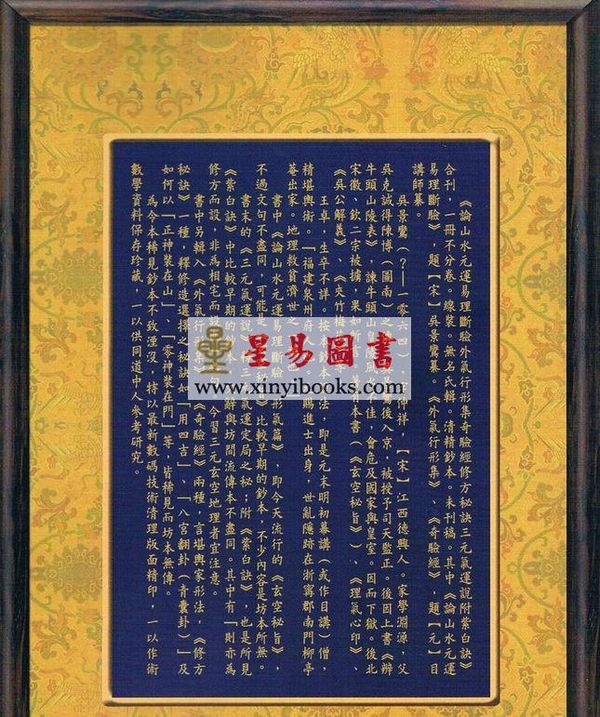 《論山水元運易理斷驗外氣行形集奇驗經修方秘訣三元氣運說附紫白訣》
合刊，一冊不分卷。線裝。無名氏輯。清精鈔本。未刊稿。其中《論山水元運
易理斷驗》，題【宋】吳景鸞纂。《外氣行形集》、《奇驗經》，題【元】目
講師纂。
吳景鸞（？——一零六四） 字仲祥，【宋】江西德興人。家學淵源，父
吳克誠得陳博（圖南） 後入京，被授予司天監正。後因上書《辯
牛頭山陵表》，諫牛頭山 不佳，會危及國家與皇室。因而下獄。後北
宋徽、欽二宗被擄，果如所 本書（《玄空秘旨》）、《理氣心印》、
《吳公解義》、《夾竹梅花
王卓，生卒不詳。按本鈔本 法，即是元末明初幕講（或作目講）僧，
精堪輿術。「福建泉州府人 賜進士出身，世亂隱跡在浙寧郡南門柳亭
菴出家。地理救貧濟世之
書中《論山水元運易理斷驗 形氣篇》，即今天流行的《玄空秘旨》，
不過文句不盡同，可能是 》比較早期的鈔本，不少內容是坊本所無。
書末的《三元氣運說 氣運定局之秘；附《紫白訣》，也是所見
《紫白訣》中比較早期的 辭與坊間流傳本不盡同。其中有「則亦為
修方而設，非為相宅而設 ，今習三元玄空地理者宜注意。
書中另輯入《外氣行形集》《奇驗經》兩種，言堪輿家形法，《修方
秘訣》一種，釋修造選擇之秘訣如「用四吉」、「八宮翻卦（青囊卦）」及
如何以「正神裝在山」、「零神裝在門」等，皆稀見而坊本無傳。
為令本稀見鈔本不致湮沒，特以最新數碼技術清理版面精印，一以作術
數學資料保存珍藏，一以供同道中人參考研究。
星易圖書
www.xinyibooks.com